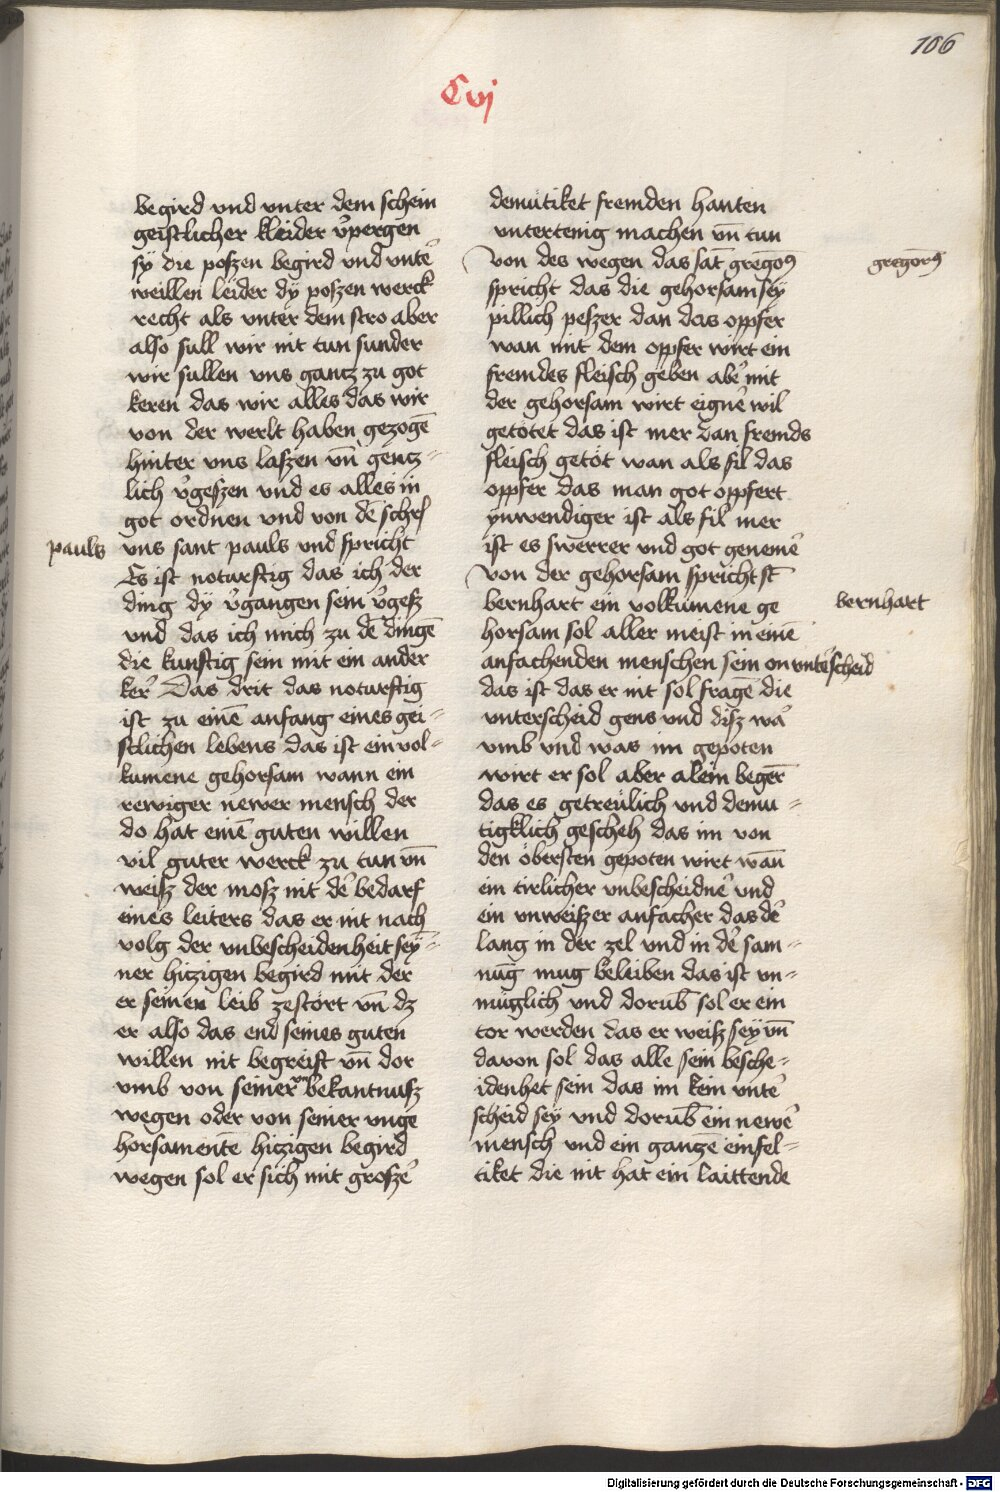 106
Cvj
begird vnd vnter dem schein
geistlicher kleider v̉pergen
sy die poszen begird vnd vnte͛
weillen leider dÿ poszen werck
recht als vnter dem stro aber
also sull wir nit tun sunder
wir sullen vns gantz zu got
keren das wir alles das wir
von der werlt haben gezogē
hinter vns laszen vn̄ gentz-
lich v̉geszen vnd es alles in
got ordnen vnd von dē schrf
pauls
vns sant pauls vnd spricht
Es ist noturftig das ich der
ding dÿ v̉gangen sein v̉gesz
vnd das ich mich zu dē dingē
die kunftig sein mit ein ander
ker͛ Das drit das noturftig
ist zu einē anfang eines gei-
stlichen lebens das ist ein vol-
kumene gehorsam wann ein
rewiger newer mensch der
do hat einē guten willen
vil guter werck zu tun vn̄
weisz der mosz nit de͛ bedarf
eines leiters das er nit nach
volg der vnbescheidenheit sey-
ner hitzigen begird mit der
er seinen leib zestört vn̄ dz
er also das end seines guten
willen nit begreift vn̄ dor
vmb von seiner vn̄ bekantnusz
wegen oder von seiner vnge
horsamente hitzigen begird
wegen sol er sich mit grosze͛
demutiket fremden hanten
vntertenig machen vn̄ tun
von des wegen das sāt gregoꝰ
gregoriꝰ
spricht das die gehorsam sey
pillich peszer dan das oppfer
wan mit dem oppfer wirt ein
fremdes fleisch geben abe͛ mit
der gehorsam wirt eigne͛ wil
getötet das ist mer dan fremds
fleisch getöt wan als fil das
oppfer das man got oppfert
ynwendiger ist als fil mer
ist es swerrer vnd got geneme͛
von der gehorsam spricht st̄
bernhart ein volkumene ge
bernhart
horsam sol aller meist in einē
anfachenden menschen sein on vnte͛scheid
das ist das er nit sol fragē die
vnterscheid gens vnd disz wa͛
vmb vnd was im gepoten
wirt er sol aber alein beger͛
das es getreulich vnd demu-
tigklich gescheh das im von
den öbersten gepoten wirt wān
ein tirlicher vnbescheidne͛ vnd
ein vnweiszer anfacher das de͛
lang in der zel vnd in de͛ sam-
nūg mug beleiben das ist vn-
müglich vnd dorūb sol er ein
tor werden das er weisz sey vn̄
davon sol das alle sein besche-
idenhet sein das im kein vnte͛
scheid sey vnd dorūb ein newe͛
mensch vnd ein gancze einfel-
tiket die nit hat ein laittende
Digitalisierung gefördert durch die Deutsche Forschungsgemeinschaft - DFG